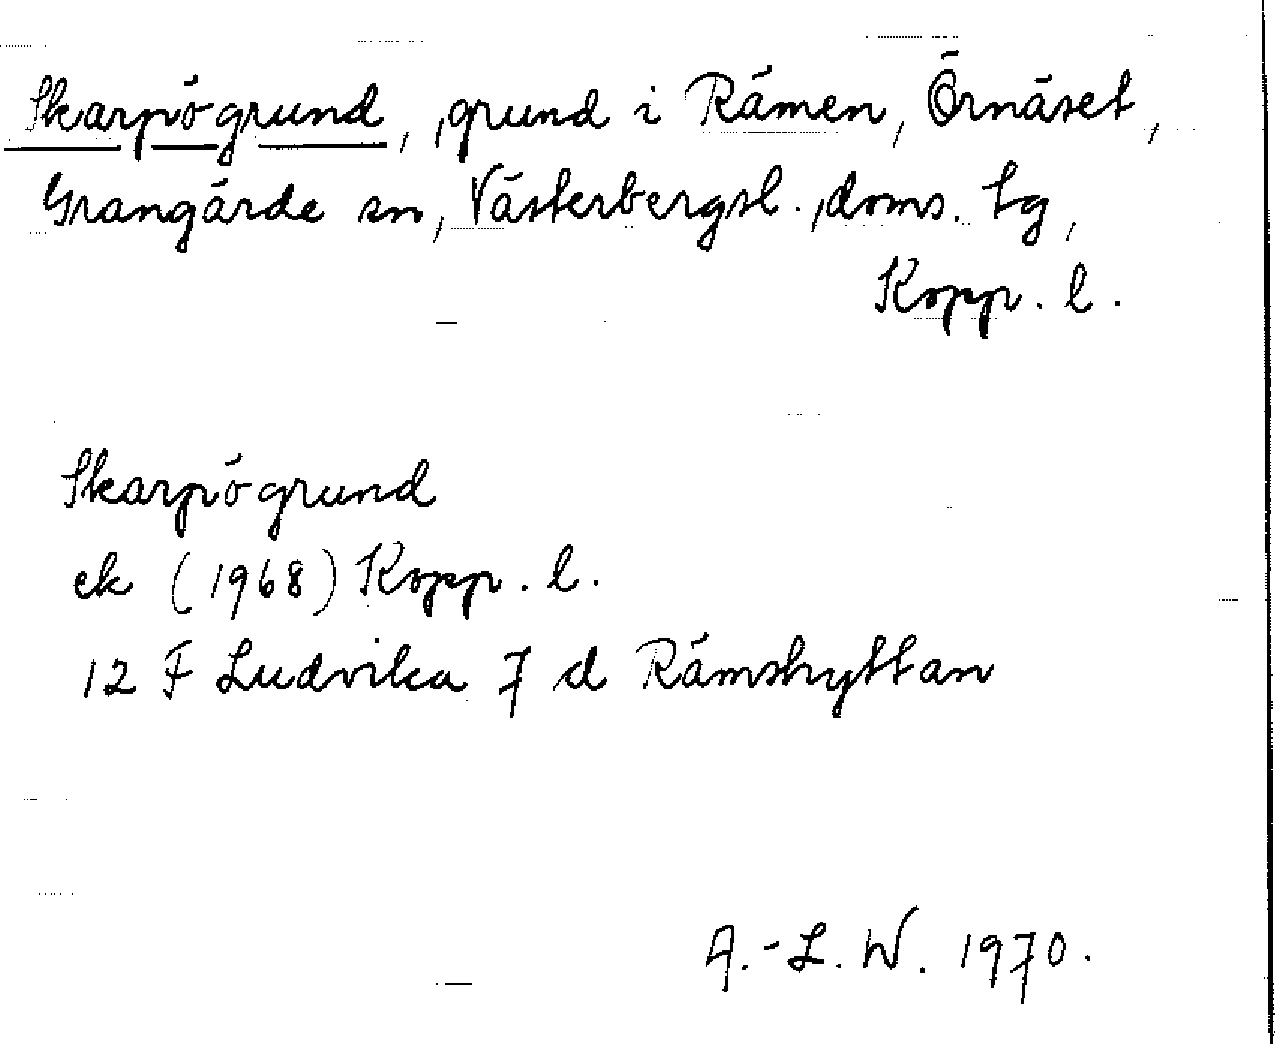 Skarpögrund, grund i Rämen, Örnäset,
Grangärde sn, Västerbergsl. doms. tg,
Kopp. l.
Skarpögrund
ek (1968) Kopp. l.
12 F Ludvika 7 d Rämshyttan
A.-L. W. 1970.